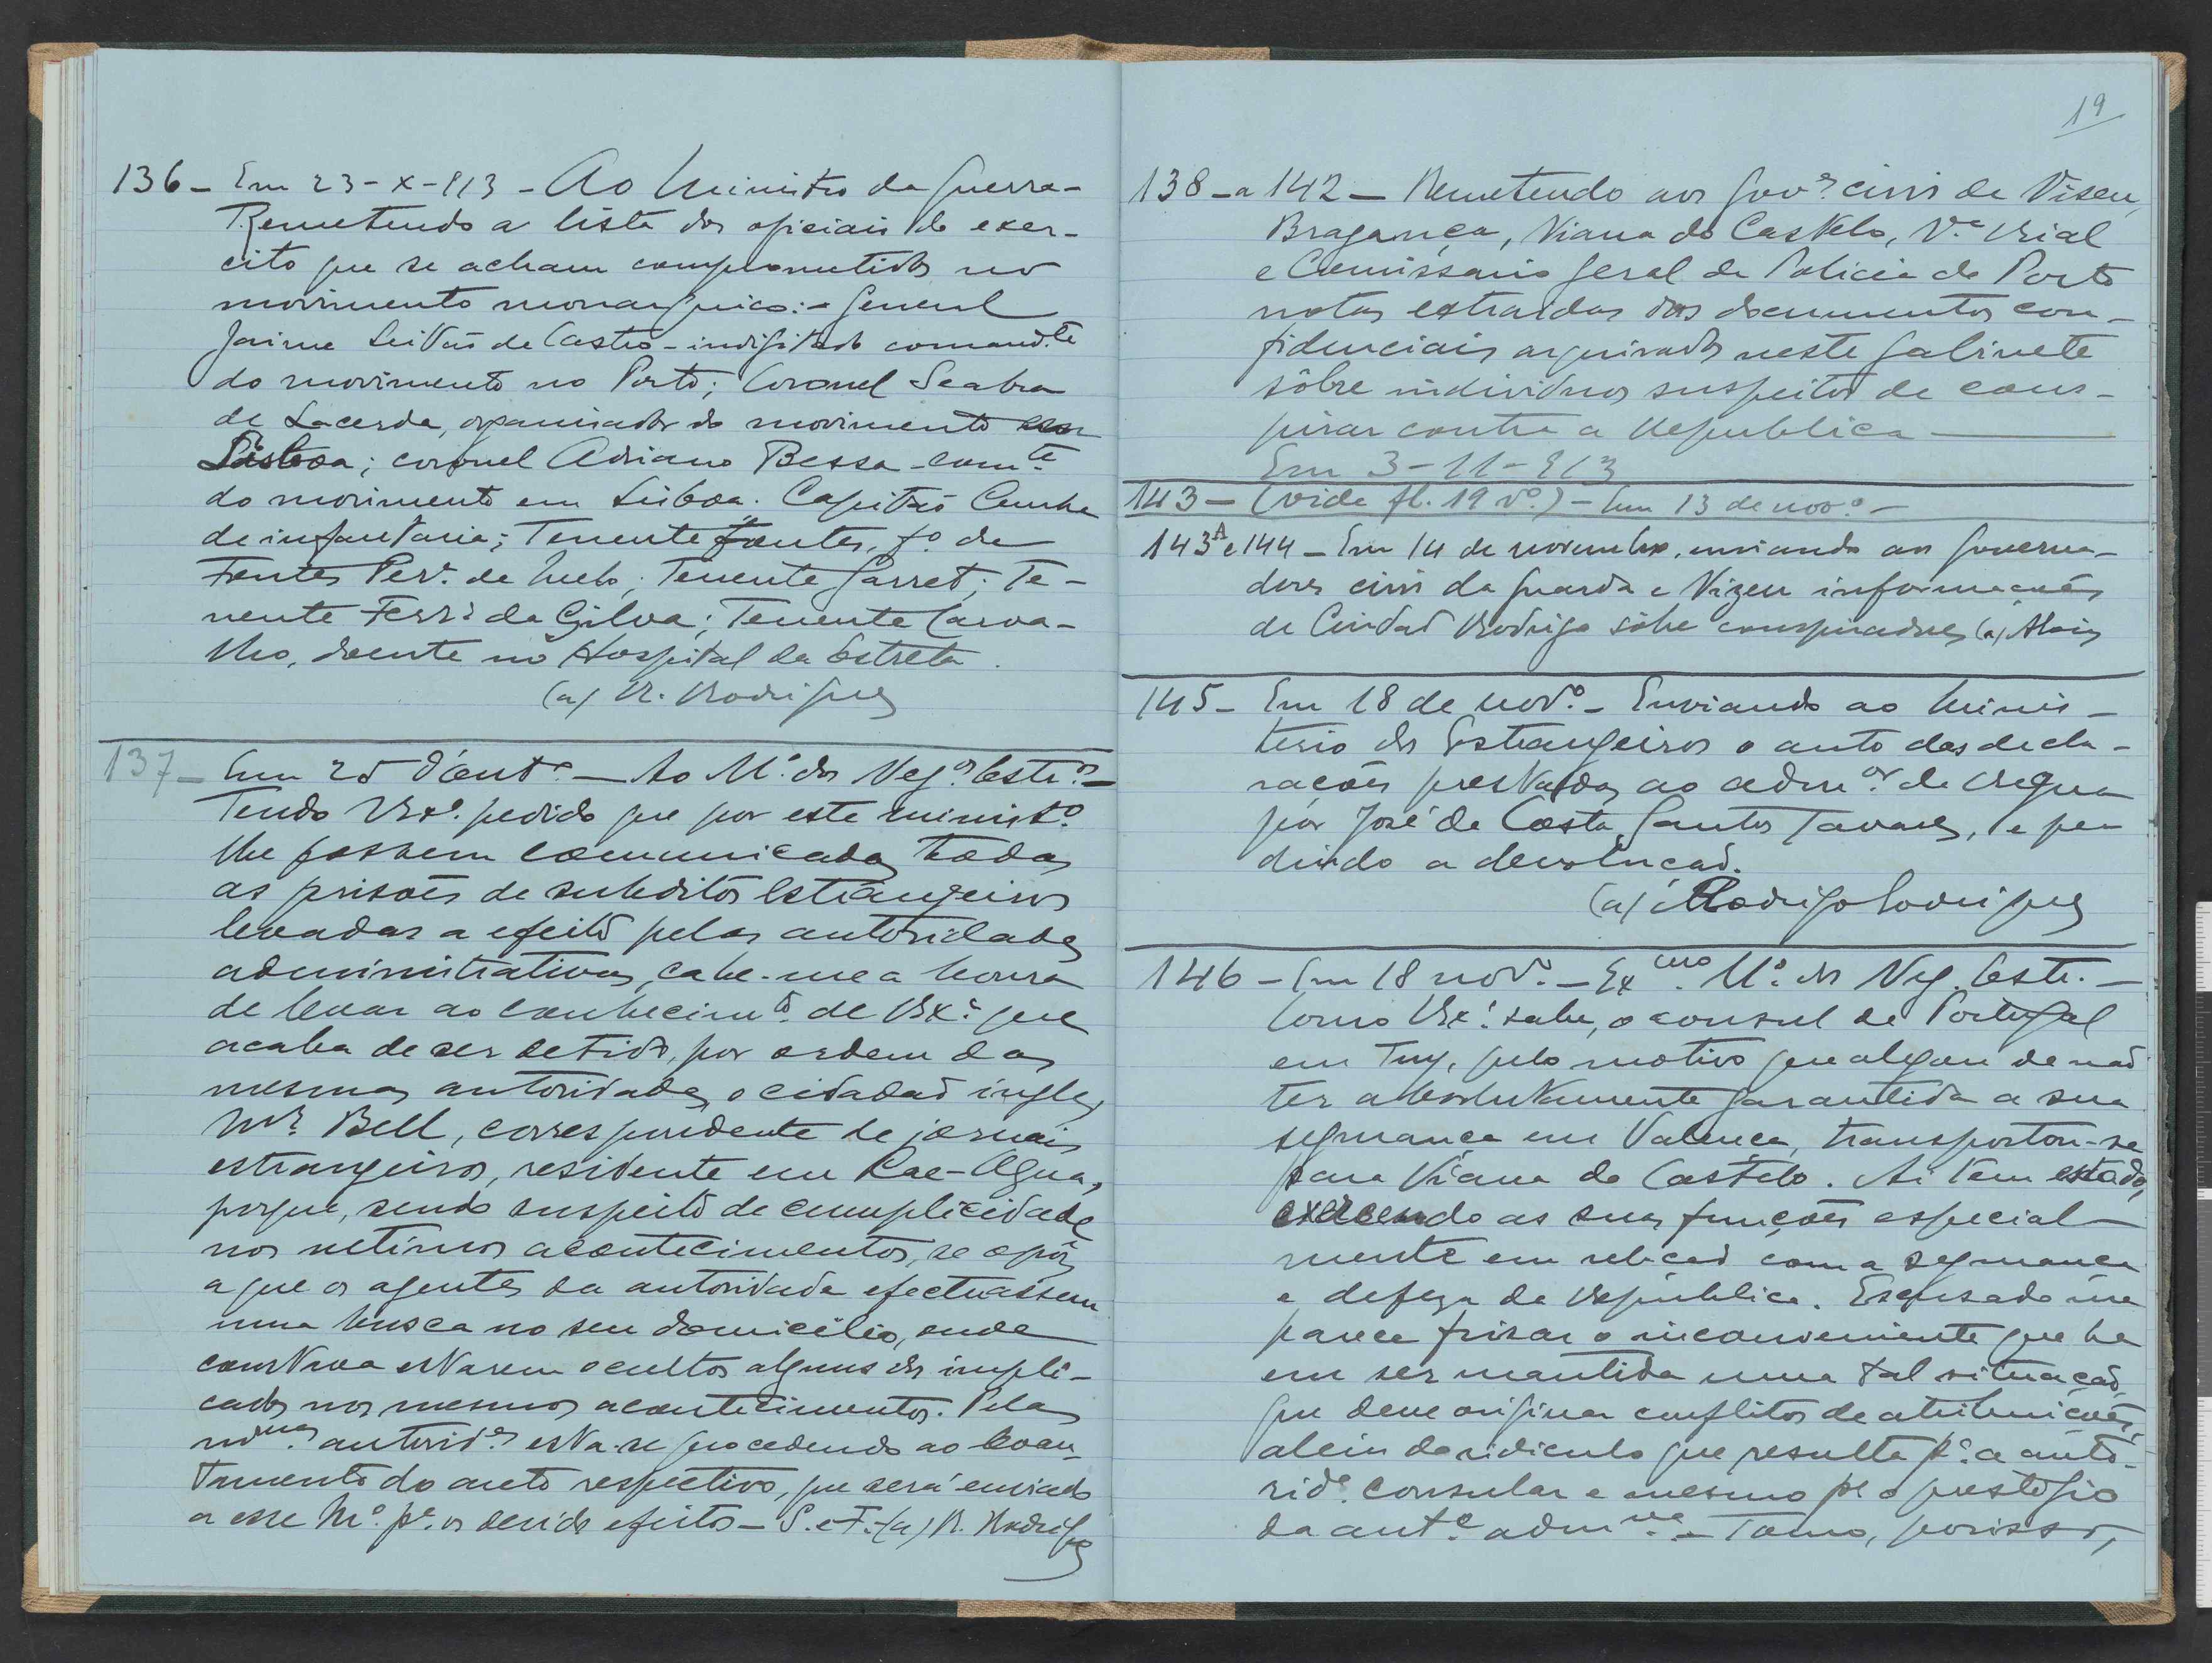 136 - Em 23-X-913 - Ao Ministro da Guerra -
Remetendo a lista dos oficiais do exer-
cito que se acham comprometidos no
movimento monarquico: - General
Jaime Leitão de Castro - indigitado comand.te
do movimento no Porto; Coronel Seabra
de Lacerda, organisador do movimento em
Lisboa; coronel Adriano Bessa - com.te
do movimento em Lisboa. Capitão Cunha
de infantaria; Tenente Fontes, fo. de
Fontes Per.a de Melo; Tenente Garret; Te-
nente Ferr.a da Silva; Tenente Carva-
lho, doente no Hospital da Estrela.
(a) R. Rodrigues
137 - Em 25 d'out.o - Ao M.o dos Neg.os Estr.os -
Tendo V. Ex.a pedido que por este minist.o
lhe fossem comunicadas todas
as prisões de subditos estrangeiros
levadas a efeito pelas autoridades
administrativas, cabe-me a honra
de levar ao conhecim.to de V. Ex.a que
acaba de ser detido, por ordem das
mesmas autoridades, o cidadão inglez
Mr. Bell, correspondente de jornais
estrangeiros, residente em Rae-Agua,
porque, sendo suspeito de cumplicidade
nos ultimos acontecimentos, se opôz
a que os agentes da autoridade efectuassem
uma busca no seu domicilio, onde
constava estarem ocultos alguns dos impli-
cados nos mesmos acontecimentos. Pelas
m.mas autorid.es esta-se procedendo ao levan-
tamento do auto respectivo, que será enviado
a esse M.o p.a os devidos efeitos - S. e F. (a) R. Rodrigues
19
138 - a 142 - Remetendo aos gov.es civis de Viseu,
Bragança, Viana do Castelo, V.a Rial
e Comissario geral da Policia do Porto
notas extraidas dos documentos con-
fidenciais arquivados neste gabinete
sôbre individuos suspeitos de cons-
pirar contra a Republica
Em 3-11-913
143 - (vide fl. 19 v.o) - Em 13 de nov.o -
143A e 144 - Em 14 de novembro, enviando aos governa-
dores civis da Guarda e Vizeu informações
de Ciudad Rodrigo sôbre conspiradores (a)
145 - Em 18 de nov.o - Enviando ao Minis-
terio dos Estrangeiros o auto das decla-
rações prestadas ao adm.or da Regua
por José da Costa Santos Tavares, e pe
dindo a devolução.
(a) Rodrigo Rodrigues
146 - Em 18 nov.o - Ex.mo M.o dos Neg. Estr. -
Como V. Ex.a sabe, o consul de Portugal
em Tuy, pelo motivo que alegou de não
ter absolutamente garantida a sua
segurança em Valença, transportou-se
para Viana do Castelo. Ai tem estado,
exercendo as suas funções especial-
mente em relação com a segurança
e defeza da Republica. Escusado me
parece frisar o inconveniente que ha
em ser mantida uma tal situação,
que deve originar conflitos de atribuições,
alem do ridiculo que resulta p.a a auto-
rid.e consular e mesmo p.a o prestigio
da aut.e adm.va - Tomo, porisso,